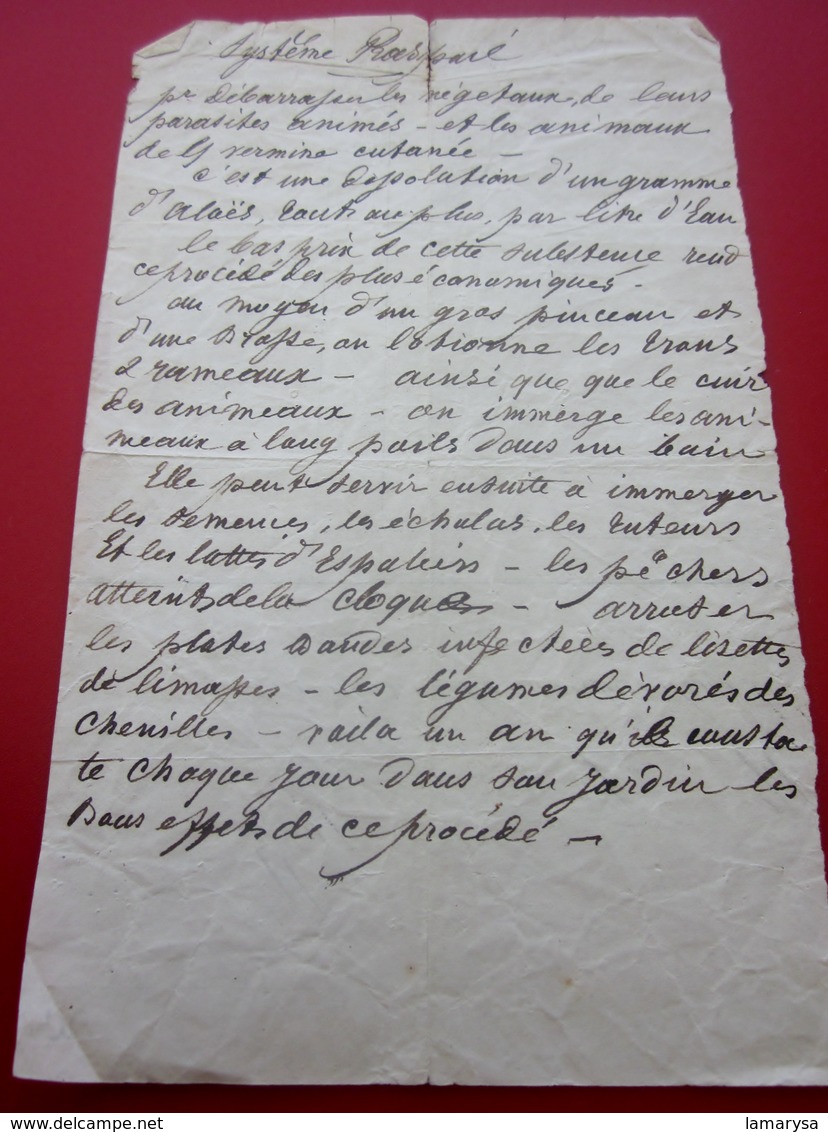 Système Raspail
pr Débarrasser les végetaux, de leurs
parasites animés - et les animaux
de lr vermine cutanée -
c'est une dissolution d'un gramme
d'aloës, tout au plus, par litre d'Eau
le bas prix de cette substence rend
ce procédé des plus économiques -
au moyen d'un gros pinceau et
d'une Brosse, on lotionne les trons
& rameaux - ainsi que que le cuir
des animeaux - on immerge les ani-
meaux à long poils dans un bain
Elle peut servir ensuite à immerger
les semences, les échalas, les tuteurs
Et les lattes d'Espaliers - les pêchers
atteints de la cloque - arroser
les plates Bandes infectées de lisettes
de limasses - les légumes dévorés des
chenilles - voila un an qu'il consta
te chaque jour dans son jardin les
Bons effets de ce procédé -
www.delcampe.net
lamarysa